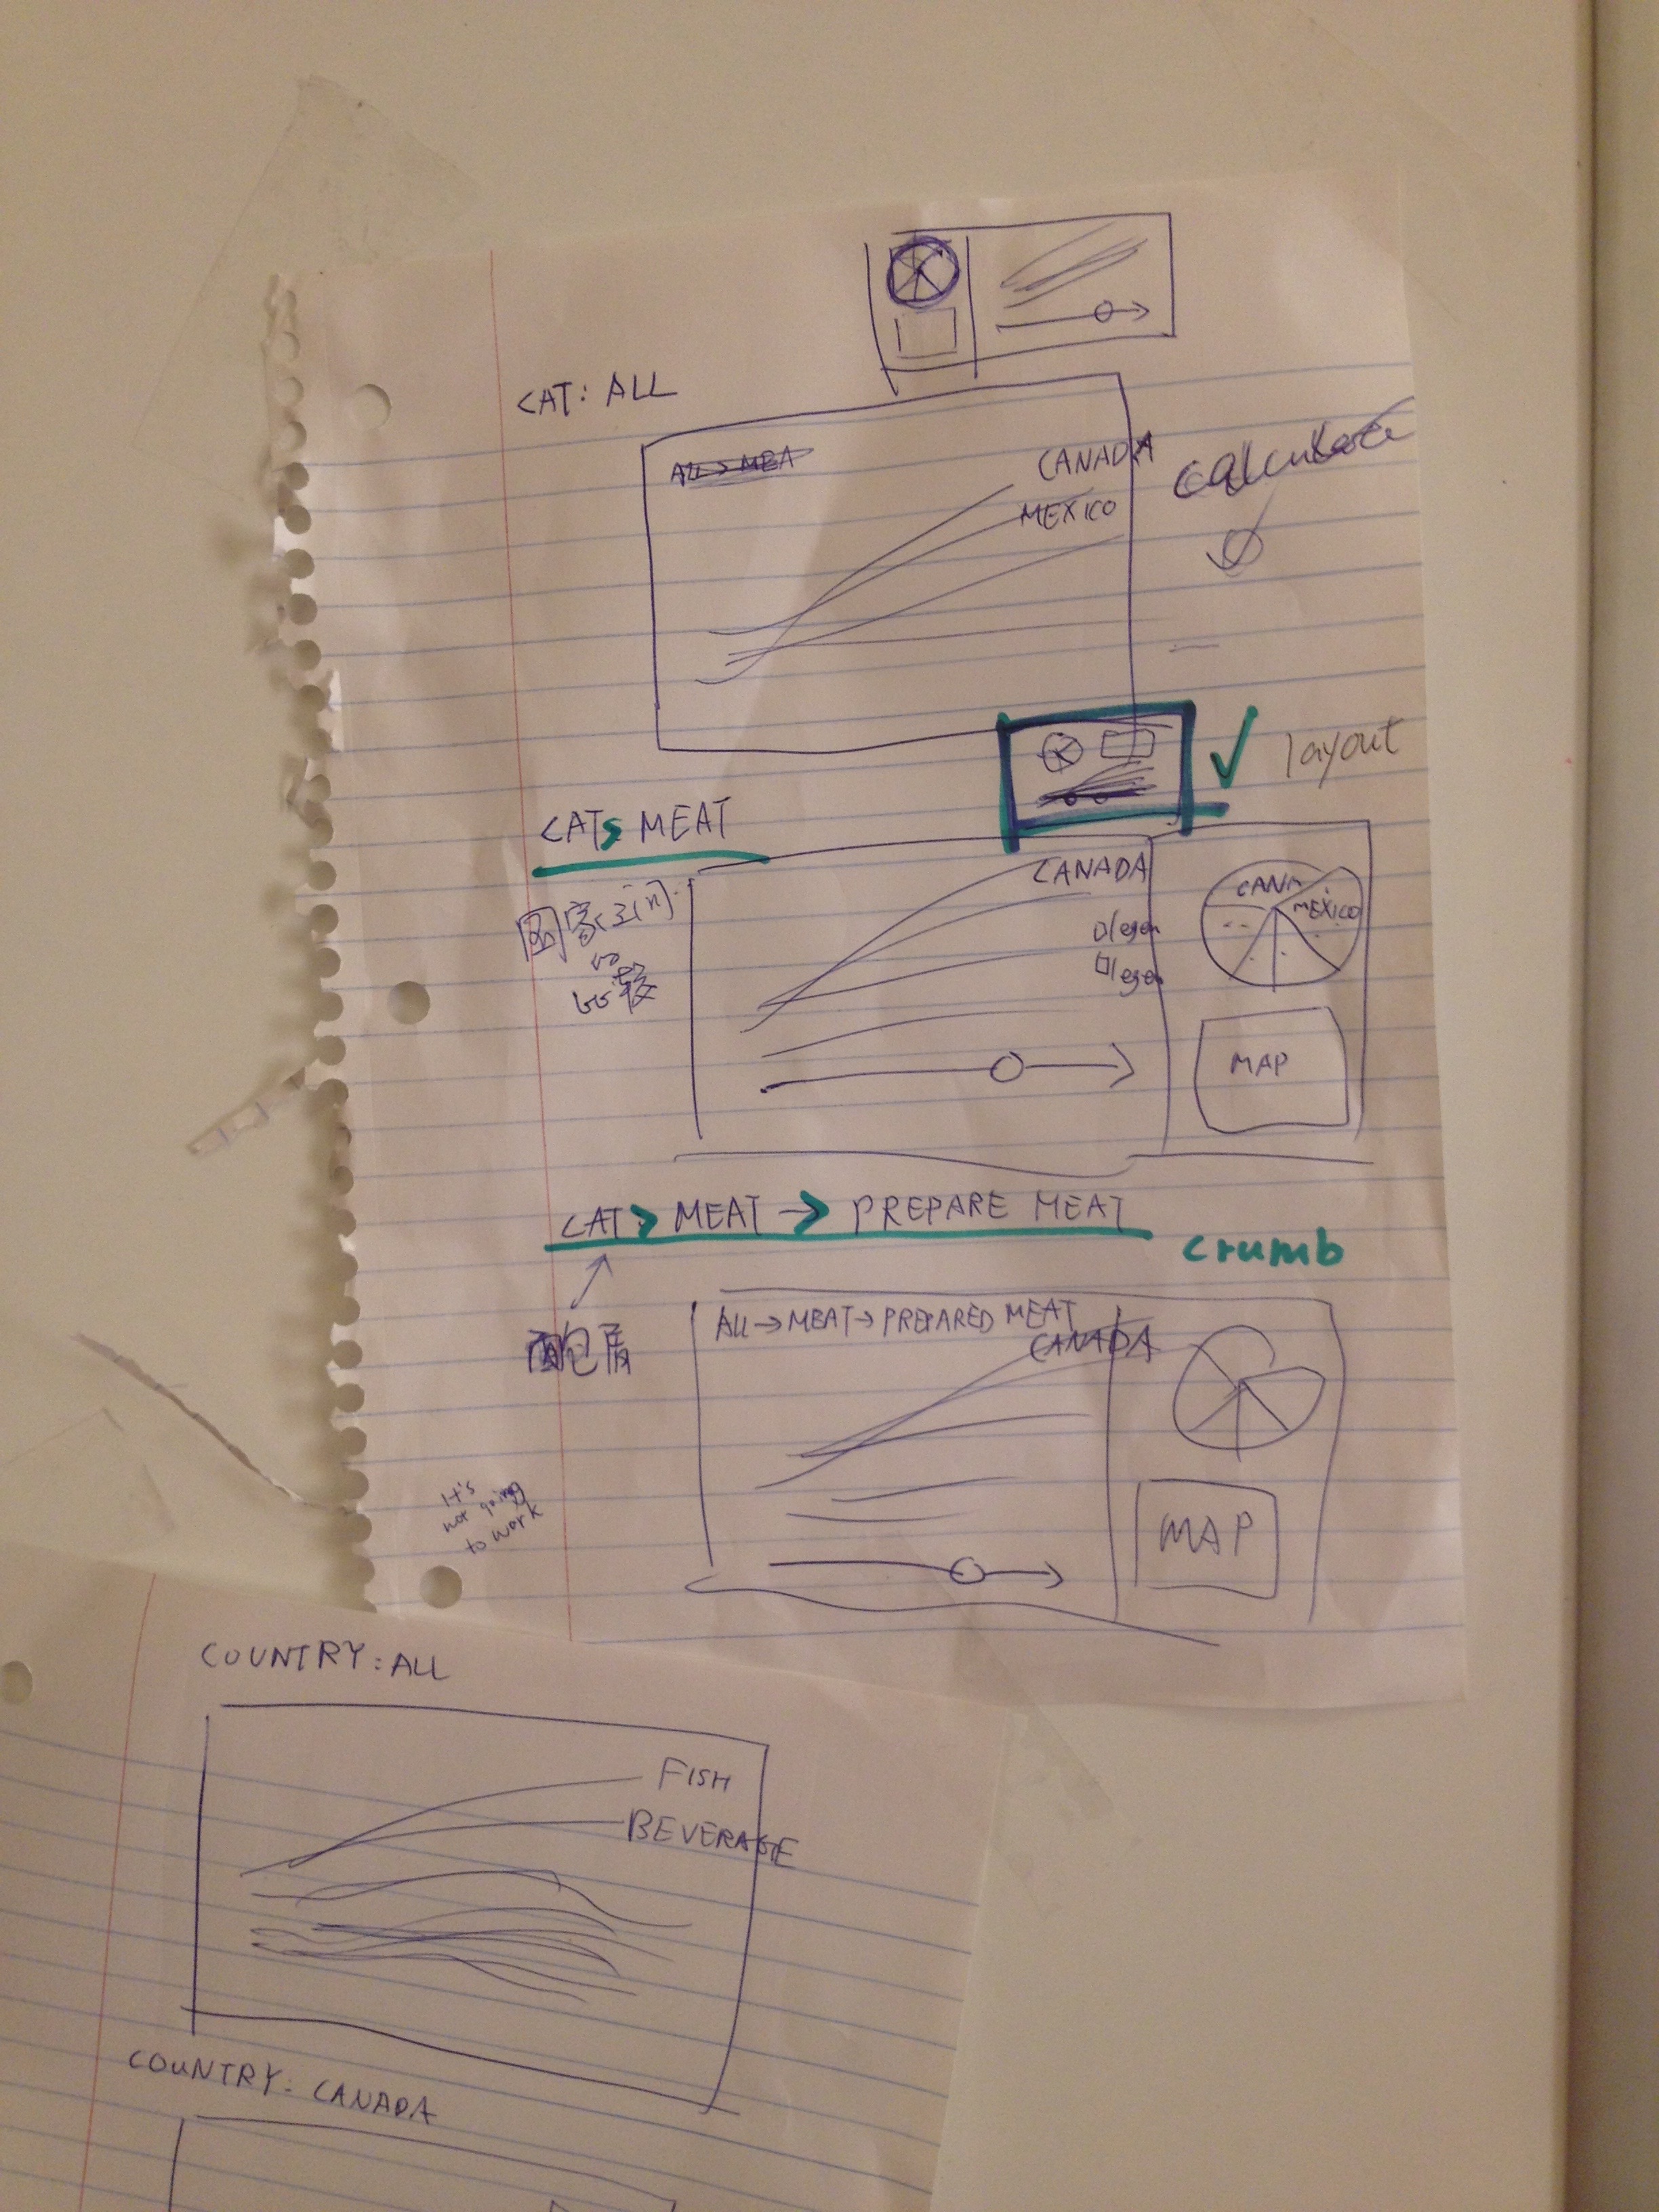 CAT: ALL
CANADA
MEXICO
calculate
layout
CAT > MEAT
CANADA
CANA
MEXICO
MAP
比较
CAT > MEAT -> PREPARE MEAT
crumb
面包屑
ALL → MEAT → PREPARED MEAT
CANADA
MAP
It's
not going
to work
COUNTRY: ALL
FISH
BEVERAGE
COUNTRY: CANADA